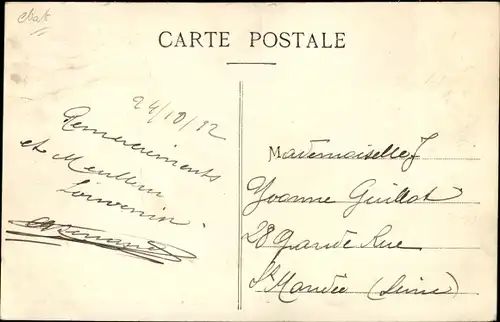 Chat
CARTE POSTALE
24/10/12
Remerciments
et Meilleur
Souvenir
Mademoiselle
Yvonne Guillot
28 Grande Rue
St Mandée (Seine)